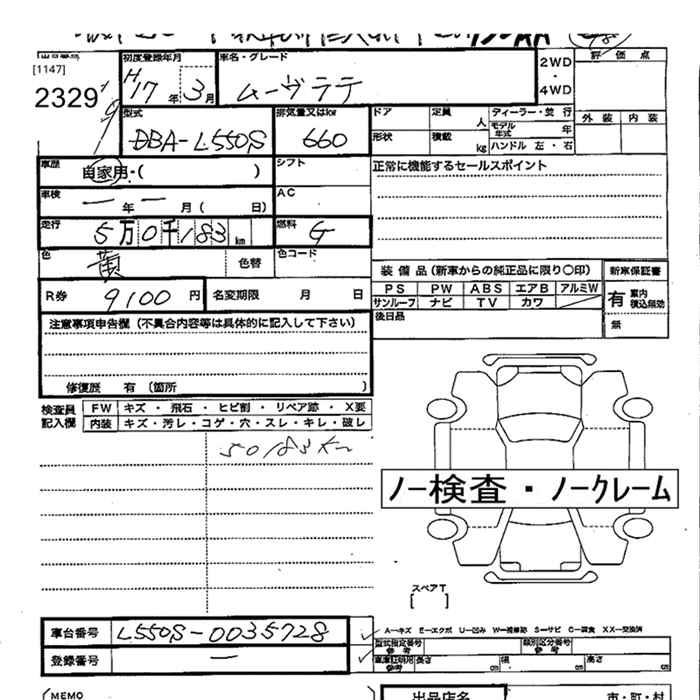 [1147]
2329
初度登録年月
H17年 3月
車名・グレード
ムーヴラテ
2WD
・
4WD
評価点
外装 内装
型式
DBA-L550S
排気量又はkw
660
ドア
定員
人
形状
積載
kg
ディーラー・並行
モデル年式 年
ハンドル 左・右
車歴
自家用・( )
シフト
正常に機能するセールスポイント
車検
ー年ー月( 日)
AC
走行
5万0千183km
燃料
G
色
黄
色替
色コード
装備品(新車からの純正品に限り〇印)
PS PW ABS エアB アルミW
サンルーフ ナビ TV カワ
新車保証書
有 車内積込無効
無
R券 9100円
名変期限 月 日
後日品
注意事項申告欄(不具合内容等は具体的に記入して下さい)
修復歴 有 (箇所 )
検査員記入欄
FW キズ・飛石・ヒビ割・リペア跡・X要
内装 キズ・汚レ・コゲ・穴・スレ・キレ・破レ
50183km
ノー検査・ノークレーム
スペアT
[ ]
車台番号 L550S-0035728
登録番号 ー
A―キズ E―エクボ U―凹み W―補修跡 S―サビ C―腐食 XX―交換済
型式指定番号 参考
類別区分番号 参考
車庫証明用 参考 長さ cm 幅 cm 高さ cm
MEMO
出品店名
市・町・村